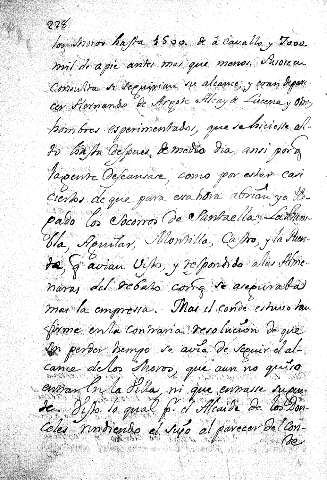 278
los Moros hasta 1500. de à Cavallo y 7000
mil de apie antes mas que menos. Pusose en
Consulta si seguirian su alcance, y eran de pare
cer Hernando de Argote Alcayde Lucena y otros
hombres esperimentados, que se hiciese al-
to hasta despues de medio dia, ansi porq
la gente descansase, como por estar casi
ciertos de que para esa hora abrian ya lle
gado los Socorros de Santaella, La Ram
bla, Aguilar, Montilla, Castro, y la
q avian visto, y respondido a las Alme
naras del rebato con q se aseguraba
mas la empressa. Mas el conde estuvo tan
firme en la Contraria resolucion de que
sin perder tiempo se avia de seguir el al-
cance de los Moros, que aun no quiso
entrar en la Villa, ni que entrasse su gen
te. Visto lo qual pr. el Alcaide de los Don-
celes rindiendo el suyo al parecer del Con-
de